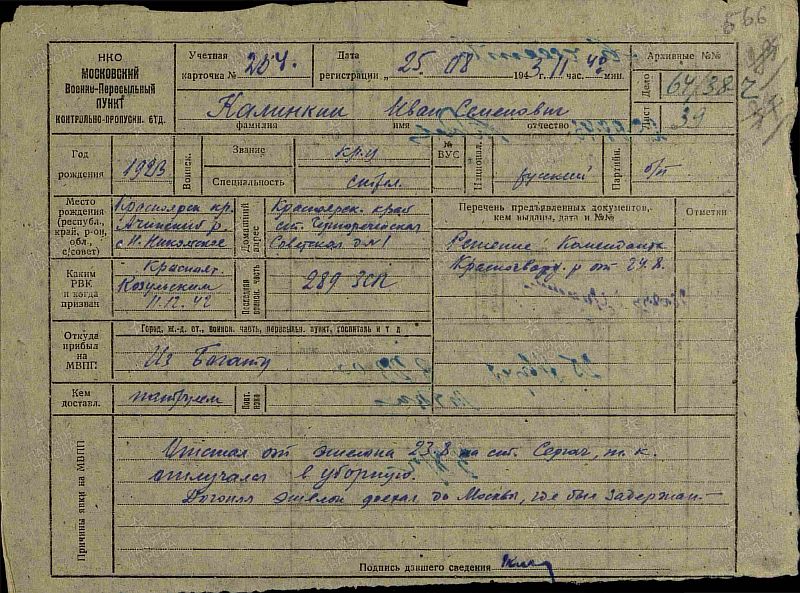 566
НКО
МОСКОВСКИЙ
Военно-Пересыльный
ПУНКТ
КОНТРОЛЬНО-ПРОПУСКН. ОТД.
Учетная карточка № 204.
Дата регистрации „25 " 08 1943 г. 11 час. 40 мин.
Архивные №№
Дело 64/382
Лист 39
Калинкин Иван Семенович
фамилия имя отчество
Год рождения 1923
Воинск.
Звание кр-ц
Специальность стрел.
№ ВУС
Национал. русский
Партийн. б/п
Место рождения (республ., край, р-он, обл., с/совет)
Красноярск кр.
Ачинский р.
с. Н. Никольское
Домашний адрес
Красноярск. край
ст. Чернореченская
Советская д № 1
Перечень предъявленных документов, кем выданы, дата и №№
Отметки
Решение Коменданта
Красногвард. р от 24.8.
Каким РВК и когда призван
Красноят.
Козульским
11.12.42
Последняя воинск. часть
289 ЗСП
Откуда прибыл на МВПП
Город, ж.-д. ст., воинск. часть, пересыльн. пункт, госпиталь и т д
Из
Кем доставл. патрулем
Повт. явка
Причины явки на МВПП
Отстал от эшелона 23.8 на ст. Сергач, т.к.
отлучался в уборную.
Догоняя эшелон доехал до Москвы, где был задержан.–
Подпись давшего сведения